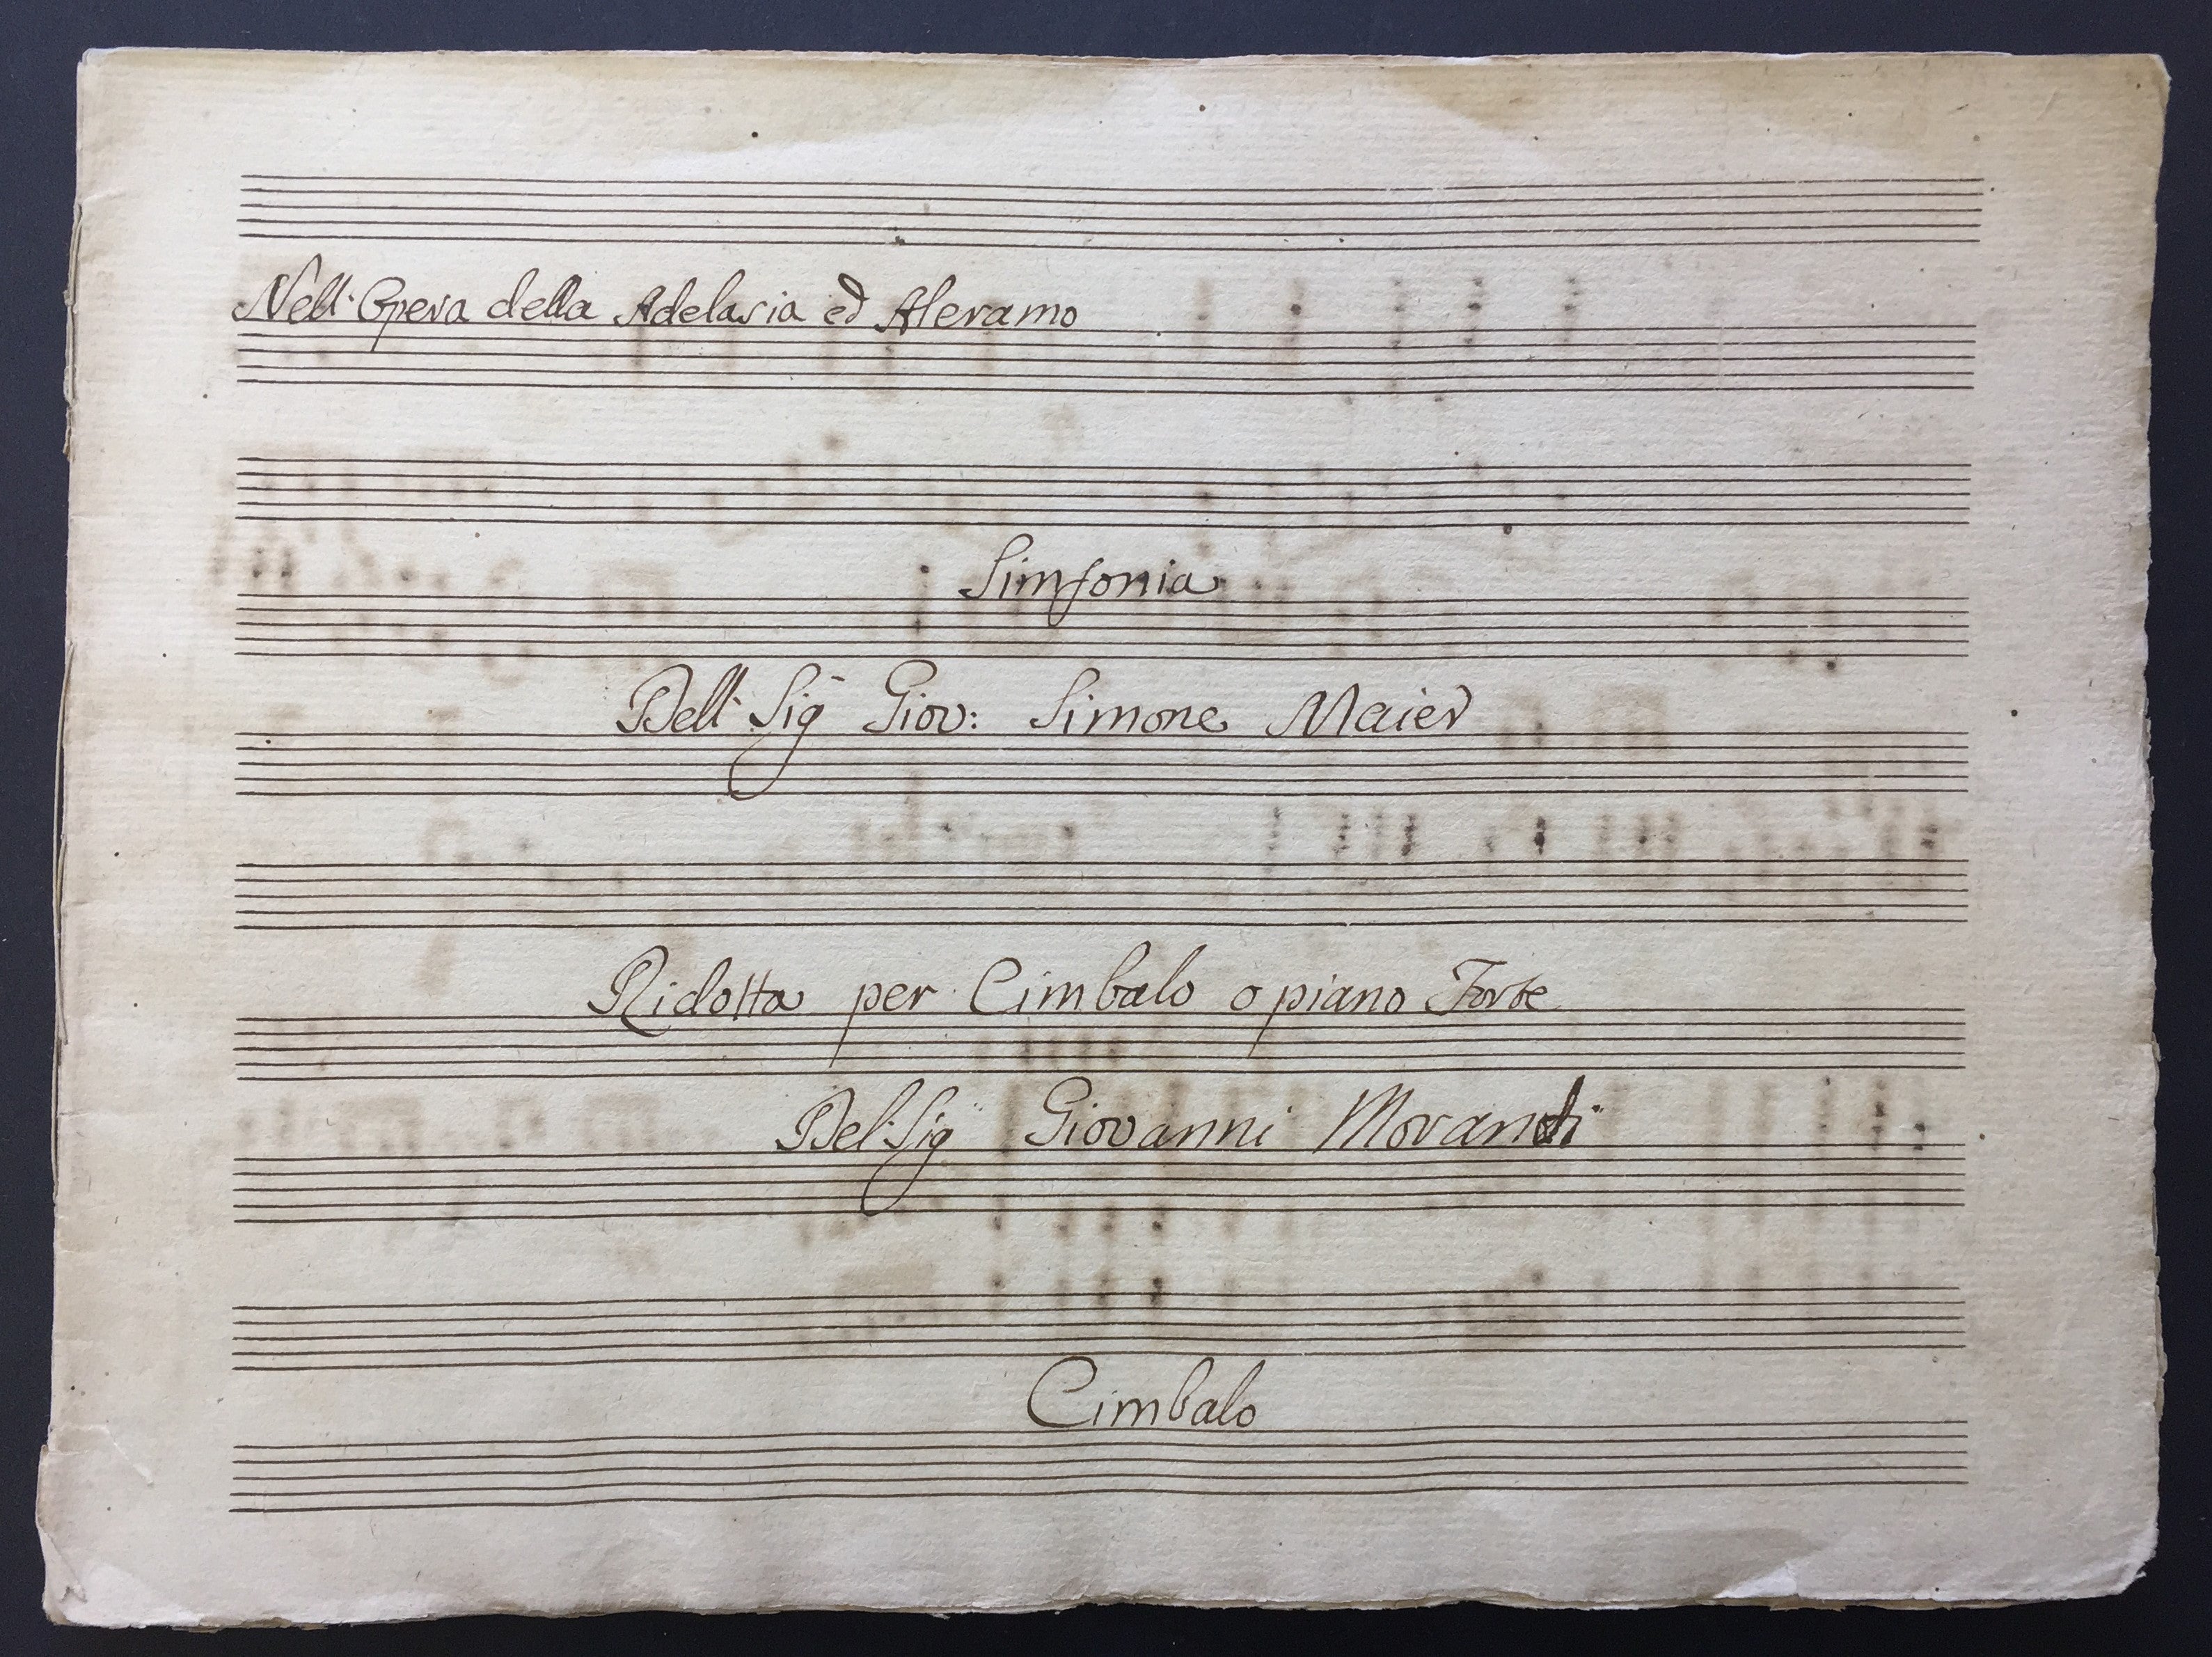 Nell' Opera della Adelasia ed Aleramo
Simfonia
Dell Sig.r Giov: Simone Maier
Ridotta per Cimbalo o piano Forte
Del Sig Giovanni Morandi
Cimbalo